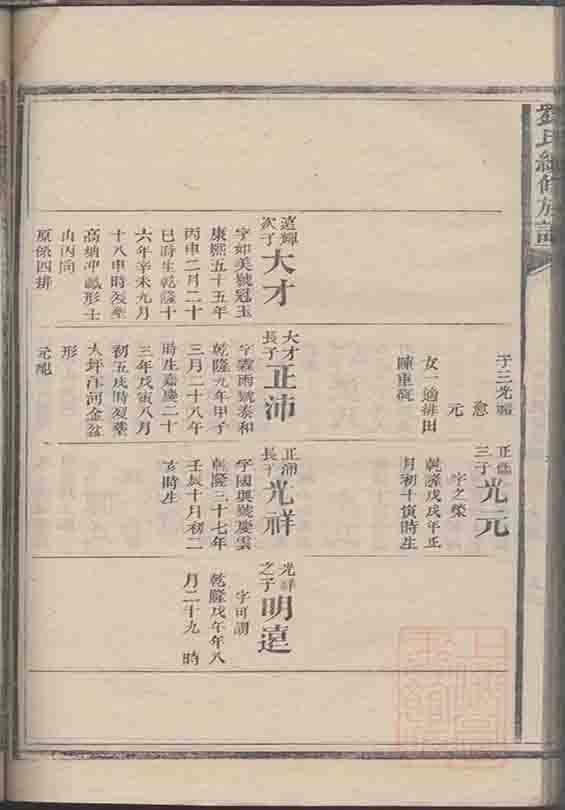 氏續修族譜
子三光
愈
元
女一適排田
陳重
正
三子
光元
字之榮
乾隆戊戌年正
月初十寅時生
遠輝
次子
大才
字如美號冠玉
康熙五十五年
丙申二月二十
巳時生乾隆十
六年辛未九月
十八申時歿葬
高坳冲 形士
山丙向
原係四排
大才
長子
正沛
字霖雨號泰和
乾隆九年甲子
三月二十八午
時生嘉慶二十
三年戊寅八月
初五戌時歿葬
大坪江河金盆
形
元
正沛
長子
光祥
字國興號慶雲
乾隆三十七年
壬辰十月初二
亥時生
光祥
之子
明遠
字可謂
乾隆戊午年八
月二十九 時